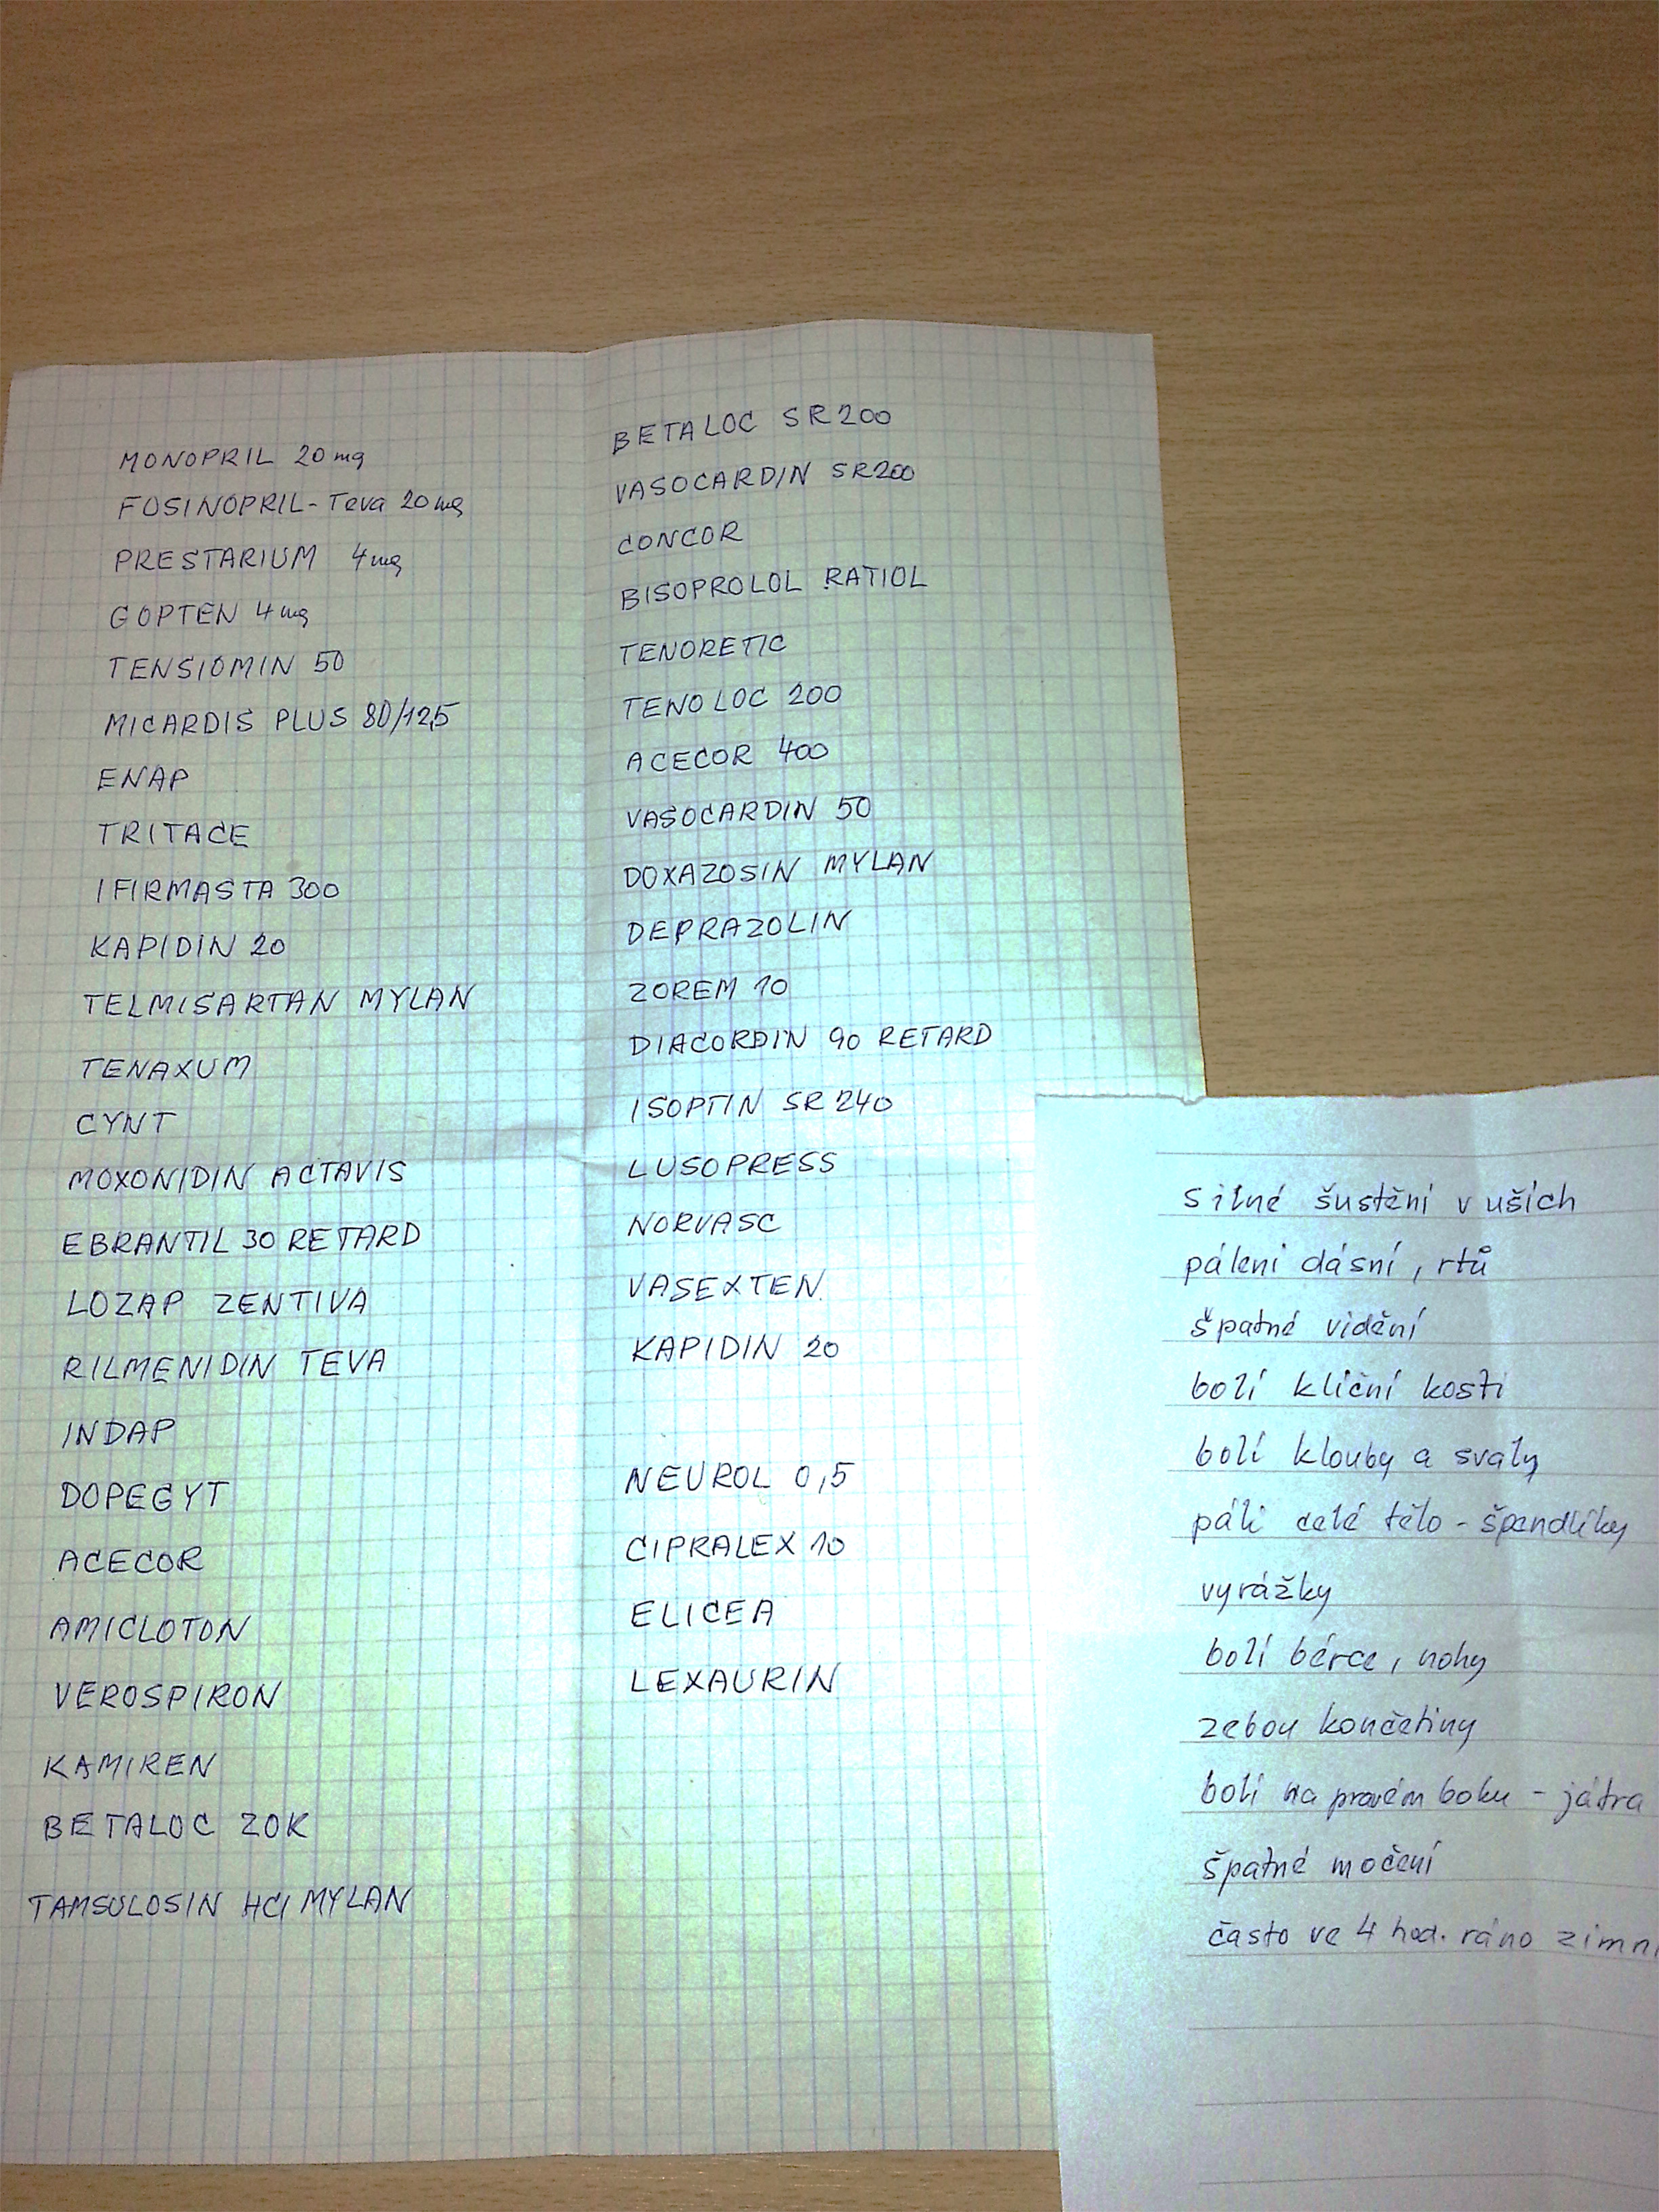 MONOPRIL 20 mg
FOSINOPRIL - Teva 20 mg
PRESTARIUM 4 mg
GOPTEN 4 mg
TENSIOMIN 50
MICARDIS PLUS 80/12,5
ENAP
TRITACE
IFIRMASTA 300
KAPIDIN 20
TELMISARTAN MYLAN
TENAXUM
CYNT
MOXONIDIN ACTAVIS
EBRANTIL 30 RETARD
LOZAP ZENTIVA
RILMENIDIN TEVA
INDAP
DOPEGYT
ACECOR
AMICLOTON
VEROSPIRON
KAMIREN
BETALOC ZOK
TAMSULOSIN HCl MYLAN
BETALOC SR 200
VASOCARDIN SR200
CONCOR
BISOPROLOL RATIOL
TENORETIC
TENOLOC 200
ACECOR 400
VASOCARDIN 50
DOXAZOSIN MYLAN
DEPRAZOLIN
ZOREM 10
DIACORDIN 90 RETARD
ISOPTIN SR 240
LUSOPRESS
NORVASC
VASEXTEN
KAPIDIN 20
NEUROL 0,5
CIPRALEX 10
ELICEA
LEXAURIN
silné šustění v uších
pálení dásní, rtů
špatné vidění
bolí klíční kosti
bolí klouby a svaly
pálí celé tělo - špendlíky
vyrážky
bolí bérce, nohy
zebou končetiny
bolí na pravém boku - játra
špatné močení
často ve 4 hod. ráno zimn